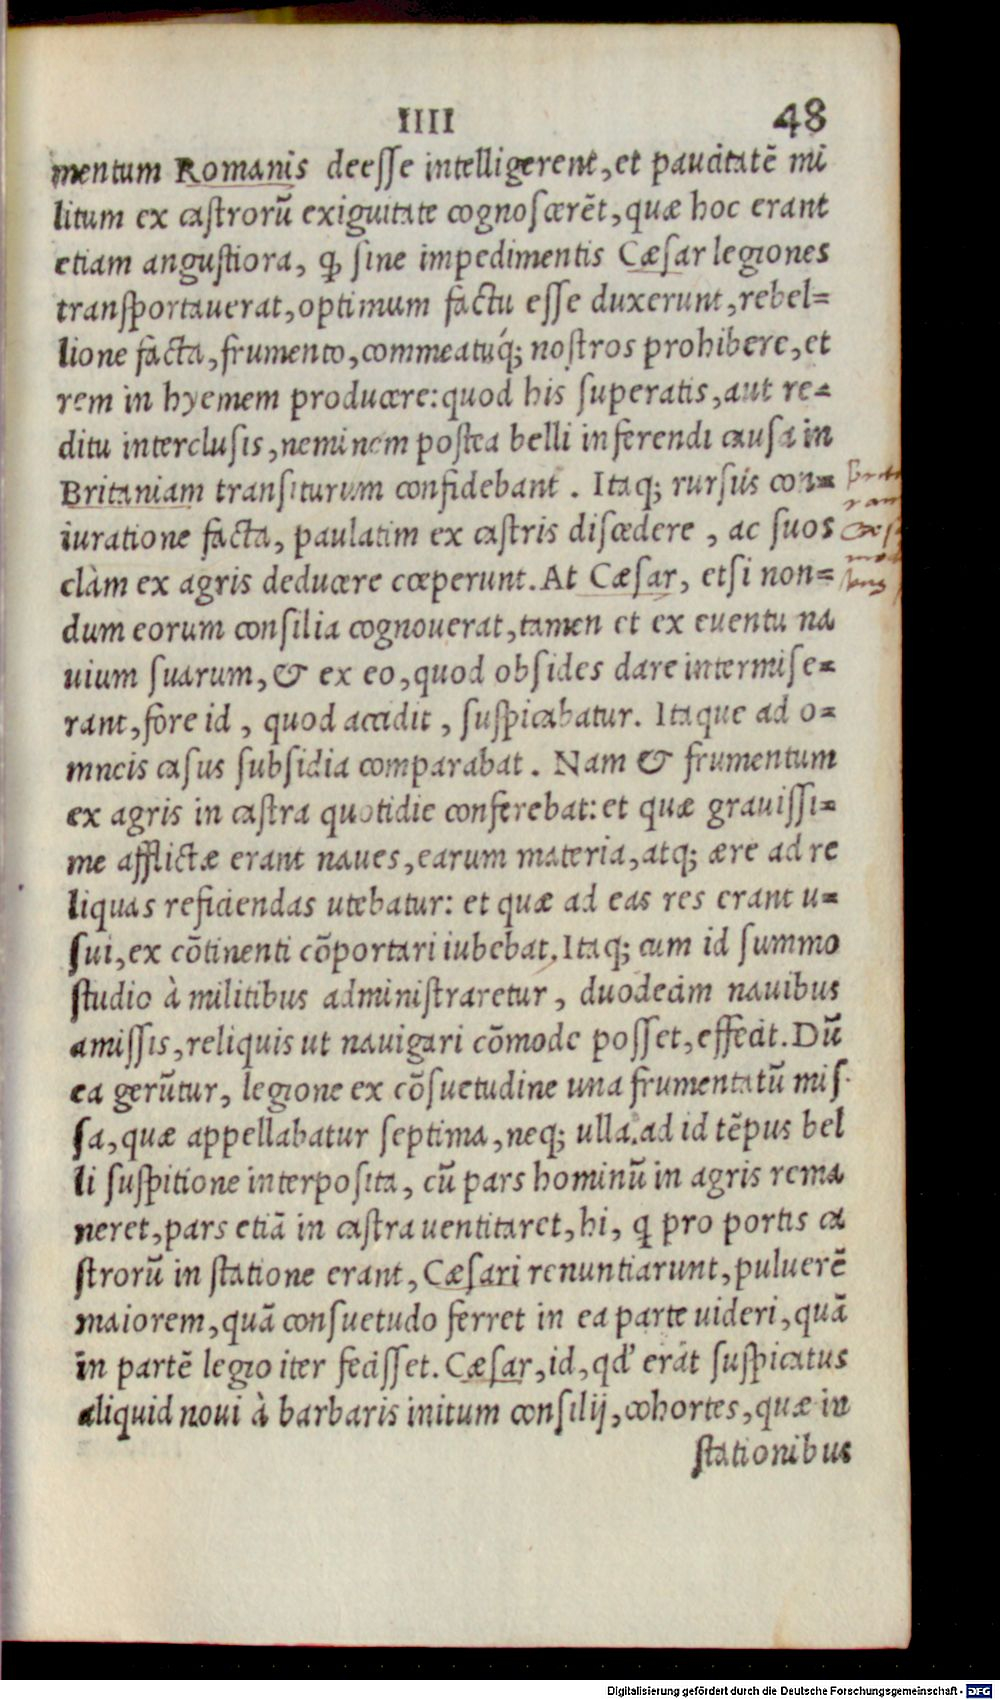 IIII 48
mentum Romanis deesse intelligerent, et paucitatē mi
litum ex castrorū exiguitate cognoscerēt, quæ hoc erant
etiam angustiora, ꝙ sine impedimentis Cæsar legiones
transportauerat, optimum factu esse duxerunt, rebel=
lione facta, frumento, commeatuq́; nostros prohibere, et
rem in hyemem producere: quod his superatis, aut re=
ditu interclusis, neminem postea belli inferendi causa in
Britaniam transiturum confidebant. Itaq; rursus con=
iuratione facta, paulatim ex castris discedere, ac suos
clàm ex agris deducere cœperunt. At Cæsar, etsi non=
dum eorum consilia cognouerat, tamen et ex euentu na
uium suarum, & ex eo, quod obsides dare intermise=
rant, fore id, quod accidit, suspicabatur. Itaque ad o=
mneis casus subsidia comparabat. Nam & frumentum
ex agris in castra quotidie conferebat: et quæ grauissi=
me afflictæ erant naues, earum materia, atq; ære ad re
liquas reficiendas utebatur: et quæ ad eas res erant u=
sui, ex cōtinenti cōportari iubebat. Itaq; cum id summo
studio à militibus administraretur, duodecim nauibus
amissis, reliquis ut nauigari cōmode posset, effecit. Dū
ea gerūtur, legione ex cōsuetudine una frumentatū mis
sa, quæ appellabatur septima, neq; ulla ad id tēpus bel
li suspitione interposita, cū pars hominū in agris rema
neret, pars etiā in castra uentitaret, hi, q pro portis ca
strorū in statione erant, Cæsari renuntiarunt, puluerē
maiorem, quā consuetudo ferret in ea parte uideri, quā
in partē legio iter fecisset. Cæsar, id, qď erat suspicatus
aliquid noui à barbaris initum consilij, cohortes, quæ in
stationibus
Digitalisierung gefördert durch die Deutsche Forschungsgemeinschaft - DFG